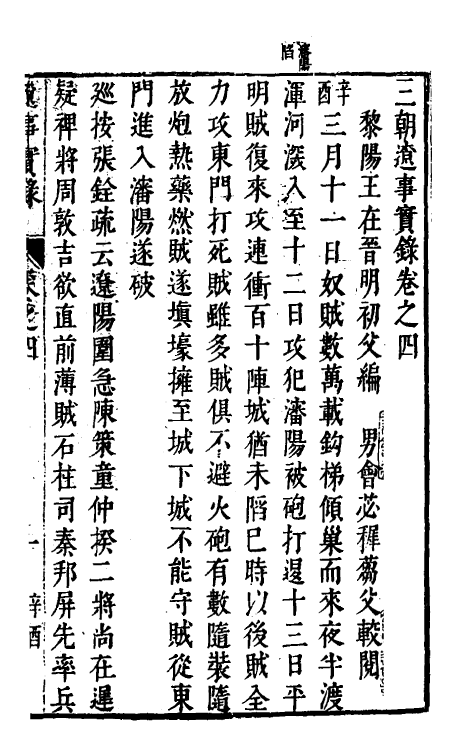 瀋陽陷
三朝遼事實錄卷之四
黎陽王在晉明初父編　男會苾穉蒭父較閱
辛酉三月十一日奴賊數萬載鈎梯傾巢而來夜半渡
渾河深入至十二日攻犯瀋陽被砲打退十三日平
明賊復來攻連衝百十陣城猶未陷巳時以後賊全
力攻東門打死賊雖多賊俱不避火砲有數隨裝隨
放炮熱藥燃賊遂塡壕擁至城下城不能守賊從東
門進入瀋陽遂破
廵按張銓疏云遼陽圍急陳策童仲揆二將尚在遲
疑裨將周敦吉欲直前薄賊石柱司秦邦屏先率兵
遼事實錄　卷之四　一　辛酉